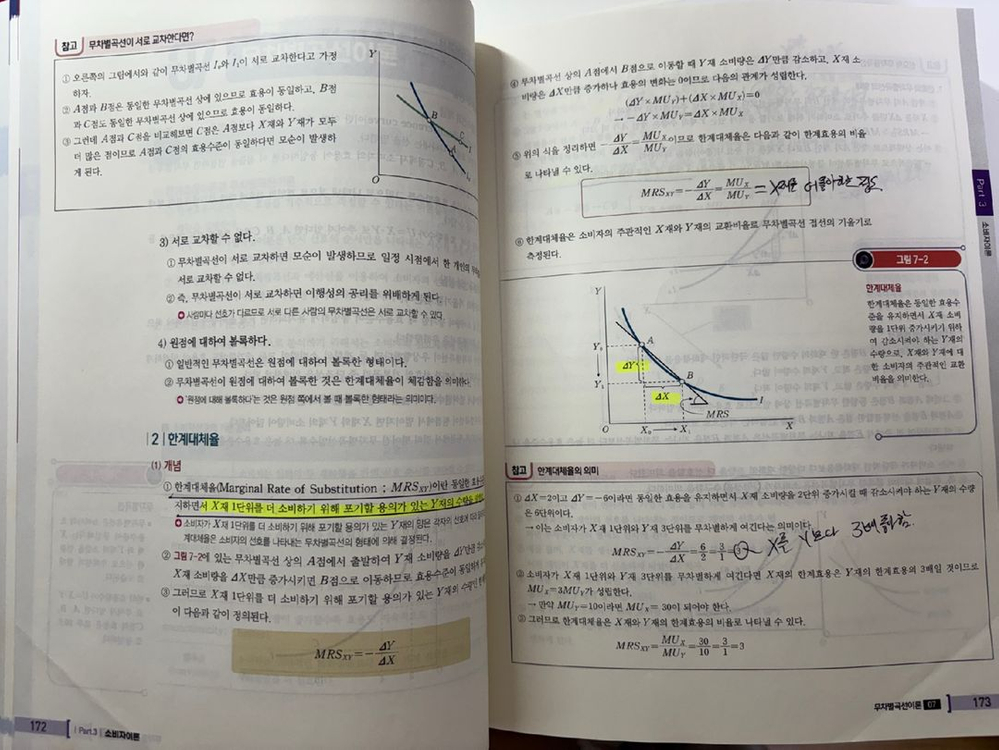 참고 무차별곡선이 서로 교차한다면?
① 오른쪽의 그림에서와 같이 무차별곡선 I₀와 I₁이 서로 교차한다고 가정
하자.
② A점과 B점은 동일한 무차별곡선 상에 있으므로 효용이 동일하고, B점
과 C점도 동일한 무차별곡선 상에 있으므로 효용이 동일하다.
③ 그런데 A점과 C점을 비교해보면 C점은 A점보다 X재와 Y재가 모두
더 많은 점이므로 A점과 C점의 효용수준이 동일하다면 모순이 발생하
게 된다.
Y
B
C
A
O
3) 서로 교차할 수 없다.
① 무차별곡선이 서로 교차하면 모순이 발생하므로 일정 시점에서 한 개인의
서로 교차할 수 없다.
② 즉, 무차별곡선이 서로 교차하면 이행성의 공리를 위배하게 된다.
사람마다 선호가 다르므로 서로 다른 사람의 무차별곡선은 서로 교차할 수 있다.
4) 원점에 대하여 볼록하다.
① 일반적인 무차별곡선은 원점에 대하여 볼록한 형태이다.
② 무차별곡선이 원점에 대하여 볼록한 것은 한계대체율이 체감함을 의미한다.
'원점에 대해 볼록하다'는 것은 원점 쪽에서 볼 때 볼록한 형태라는 의미이다.
2 한계대체율
(1) 개념
① 한계대체율(Marginal Rate of Substitution ; MRS_XY)이란 동일한
지하면서 X재 1단위를 더 소비하기 위해 포기할 용의가 있는 Y재의 수량을
소비자가 X재 1단위를 더 소비하기 위해 포기할 용의가 있는 Y재의 양은 각자의 선호에 따라
계대체율은 소비자의 선호를 나타내는 무차별곡선의 형태에 의해 결정된다.
② 그림 7-2에 있는 무차별곡선 상의 A점에서 출발하여 Y재 소비량을 ΔY만큼
X재 소비량을 ΔX만큼 증가시키면 B점으로 이동하므로 효용수준이 동일하게
③ 그러므로 X재 1단위를 더 소비하기 위해 포기할 용의가 있는 Y재의 수량인
이 다음과 같이 정의된다.
MRS_XY = −ΔY/ΔX
172 Part.3 소비자이론
④ 무차별곡선 상의 A점에서 B점으로 이동할 때 Y재 소비량은 ΔY만큼 감소하고, X재 소
비량은 ΔX만큼 증가하나 효용의 변화는 0이므로 다음의 관계가 성립한다.
(ΔY×MU_Y)+(ΔX×MU_X)=0
→ −ΔY×MU_Y=ΔX×MU_X
⑤ 위의 식을 정리하면 −ΔY/ΔX = MU_X/MU_Y이므로 한계대체율은 다음과 같이 한계효용의 비율
로 나타낼 수 있다.
MRS_XY=−ΔY/ΔX=MU_X/MU_Y = X재를
⑥ 한계대체율은 소비자의 주관적인 X재와 Y재의 교환비율로 무차별곡선 접선의 기울기로
측정된다.
그림 7-2
한계대체율
한계대체율은 동일한 효용수
준을 유지하면서 X재 소비
량을 1단위 증가시키기 위하
여 감소시켜야 하는 Y재의
수량으로, X재와 Y재에 대
한 소비자의 주관적인 교환
비율을 의미한다.
Y
Y₀
A
ΔY
Y₁
B
ΔX
I
MRS
O
X₀
X₁
X
참고 한계대체율의 의미
① ΔX=2이고 ΔY=−6이라면 동일한 효용을 유지하면서 X재 소비량을 2단위 증가시킬 때 감소시켜야 하는 Y재의 수량
은 6단위이다.
→ 이는 소비자가 X재 1단위와 Y재 3단위를 무차별하게 여긴다는 의미이다.
MRS_XY=−ΔY/ΔX=6/2=3/1=3 → X를 Y보다 3배 좋아함.
② 소비자가 X재 1단위와 Y재 3단위를 무차별하게 여긴다면 X재의 한계효용은 Y재의 한계효용의 3배일 것이므로
MU_X=3MU_Y가 성립한다.
→ 만약 MU_Y=10이라면 MU_X=30이 되어야 한다.
③ 그러므로 한계대체율은 X재와 Y재의 한계효용의 비율로 나타낼 수 있다.
MRS_XY=MU_X/MU_Y=30/10=3/1=3
Part 3
소비자이론
무차별곡선이론 07 173